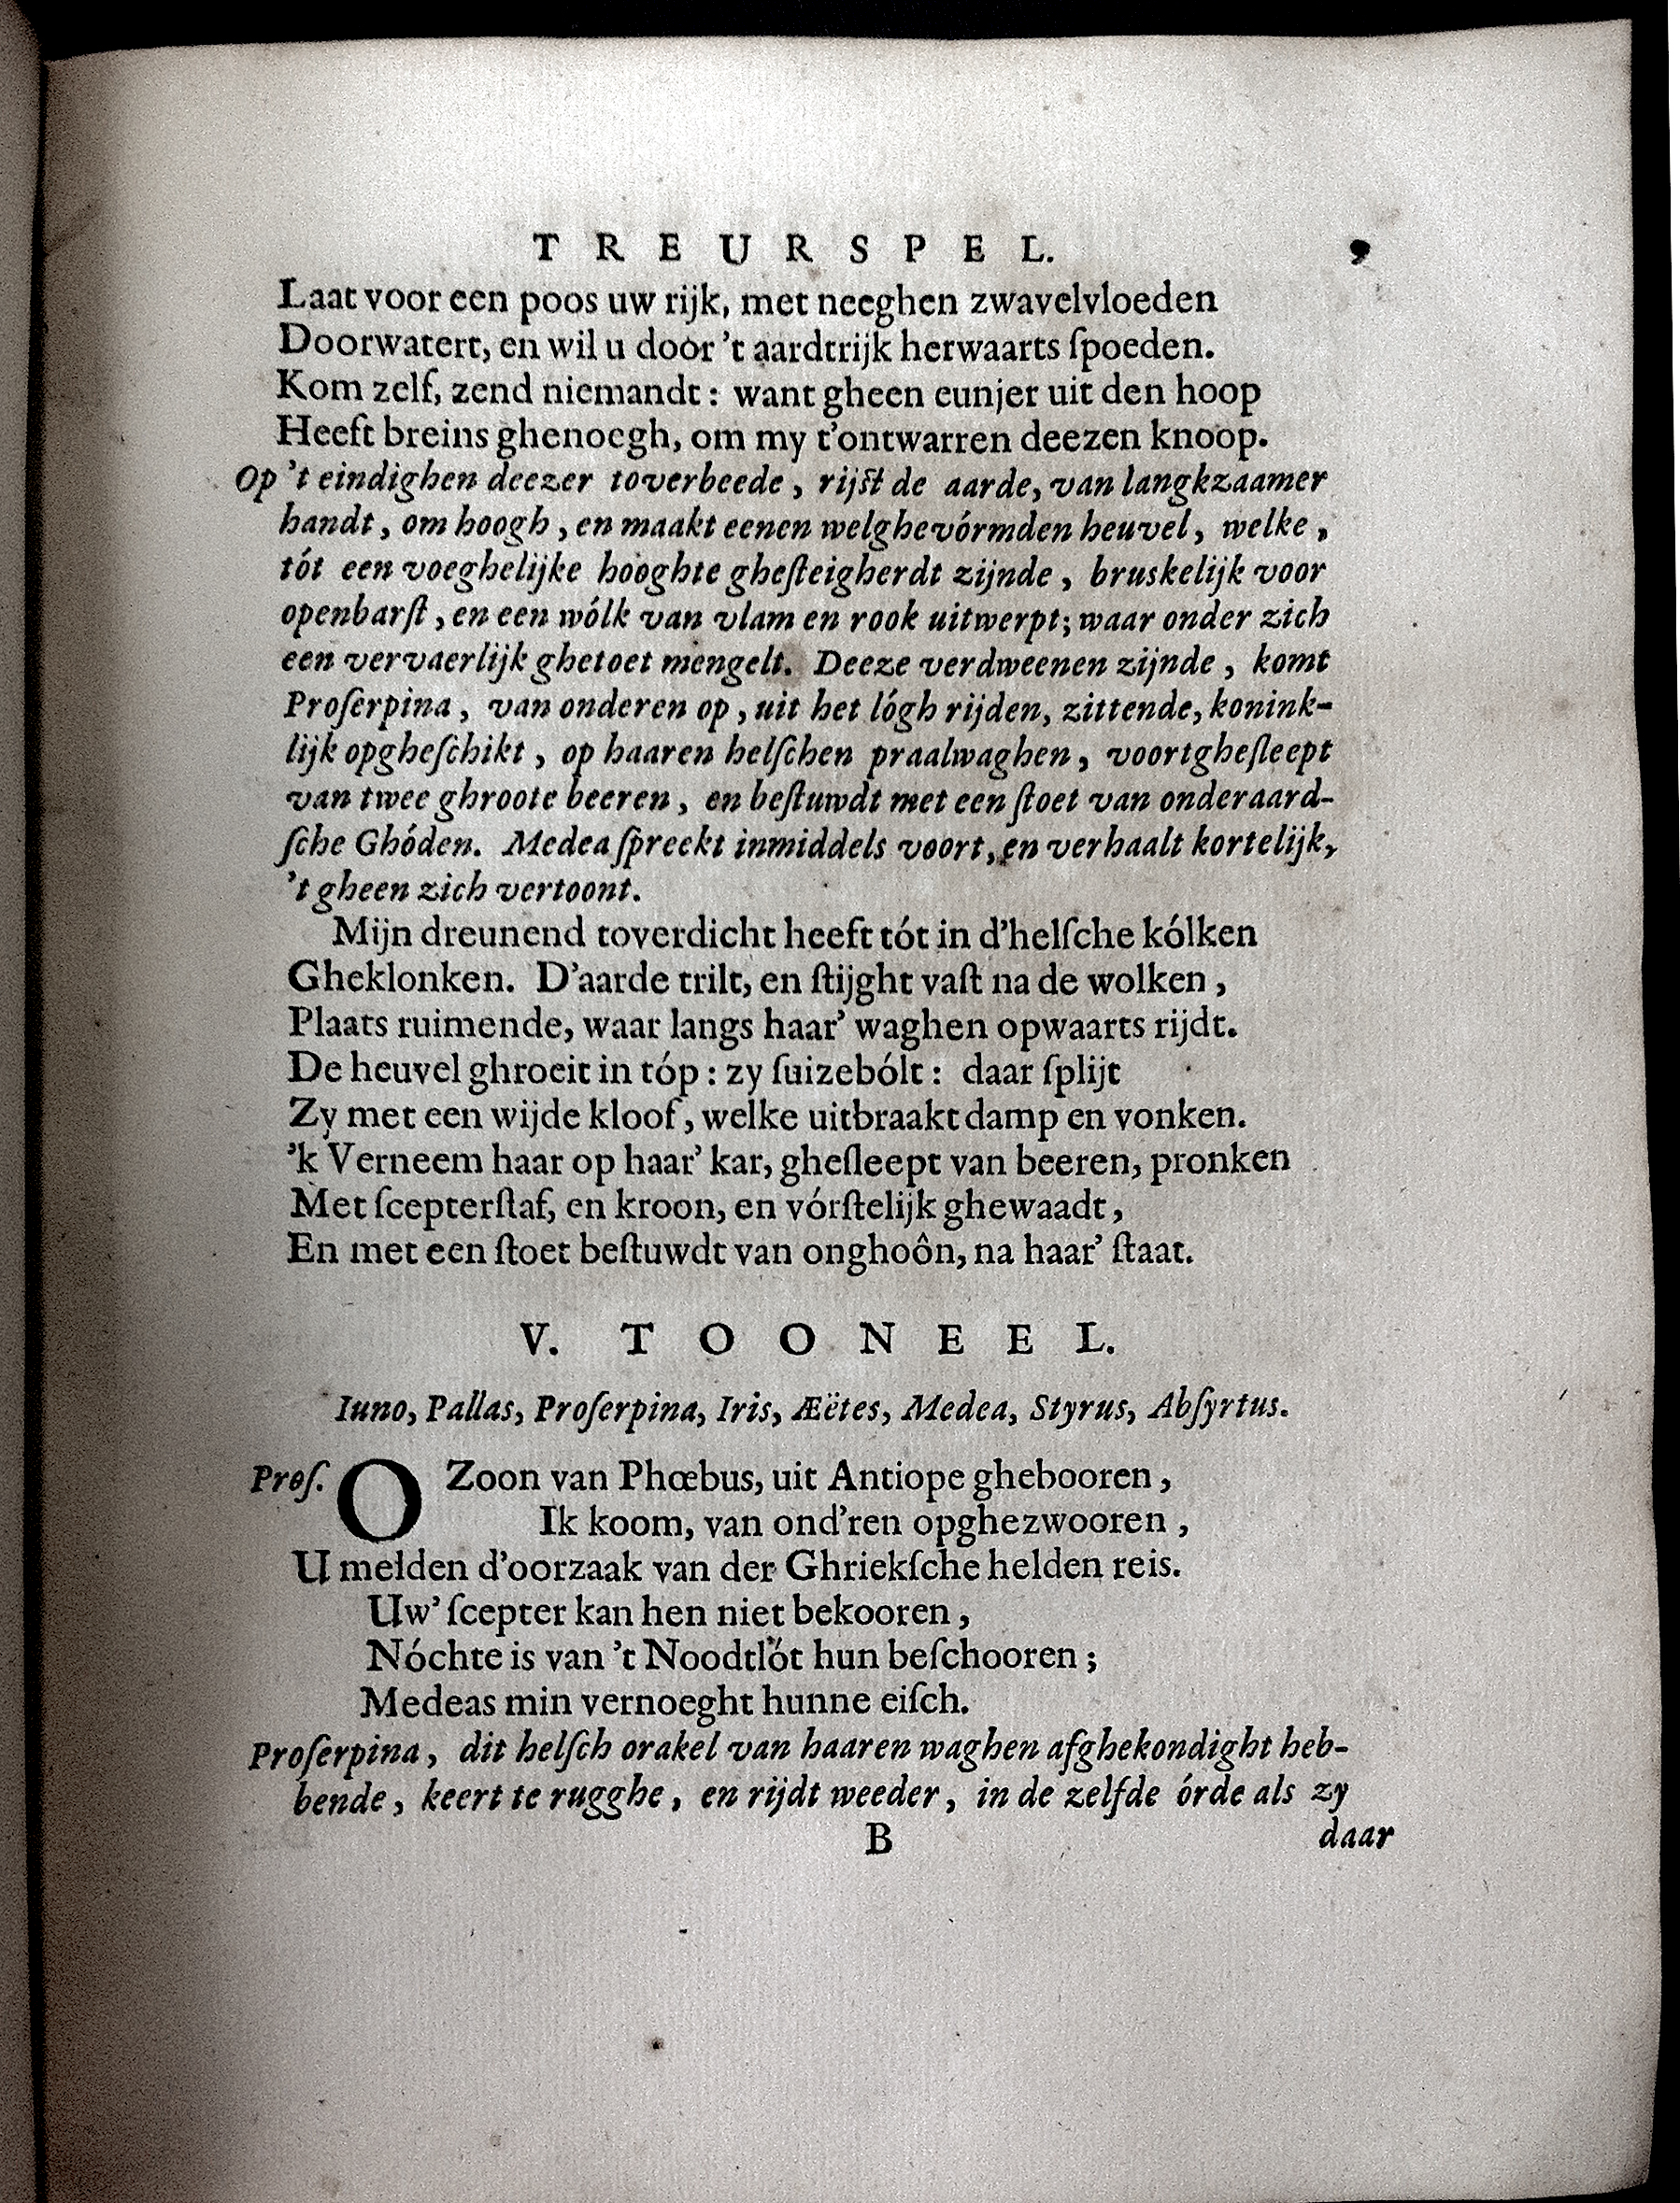 TREURSPEL. 9
Laat voor een poos uw rijk, met neeghen zwavelvloeden
Doorwatert, en wil u door 't aardtrijk herwaarts ſpoeden.
Kom zelf, zend niemandt: want gheen eunjer uit den hoop
Heeft breins ghenoegh, om my t'ontwarren deezen knoop.
Op 't eindighen deezer toverbeede, rijſt de aarde, van langkzaamer
handt, om hoogh, en maakt eenen welghevórmden heuvel, welke,
tót een voeghelijke hooghte gheſteigherdt zijnde, bruskelijk voor
openbarſt, en een wólk van vlam en rook uitwerpt; waar onder zich
een vervaerlijk ghetoet mengelt. Deeze verdweenen zijnde, komt
Proſerpina, van onderen op, uit het lógh rijden, zittende, konink-
lijk opgheſchikt, op haaren helſchen praalwaghen, voortgheſleept
van twee ghroote beeren, en beſtuwdt met een ſtoet van onderaard-
ſche Ghóden. Medea ſpreekt inmiddels voort, en verhaalt kortelijk,
't gheen zich vertoont.
Mijn dreunend toverdicht heeft tót in d'helſche kólken
Gheklonken. D'aarde trilt, en ſtijght vaſt na de wolken,
Plaats ruimende, waar langs haar' waghen opwaarts rijdt.
De heuvel ghroeit in tóp: zy ſuizebólt: daar ſplijt
Zy met een wijde kloof, welke uitbraakt damp en vonken.
'k Verneem haar op haar' kar, gheſleept van beeren, pronken
Met ſcepterſtaf, en kroon, en vórſtelijk ghewaadt,
En met een ſtoet beſtuwdt van onghoôn, na haar' ſtaat.
V. TOONEEL.
Iuno, Pallas, Proſerpina, Iris, Æëtes, Medea, Styrus, Abſyrtus.
Proſ. O Zoon van Phœbus, uit Antiope ghebooren,
Ik koom, van ond'ren opghezwooren,
U melden d'oorzaak van der Ghriekſche helden reis.
Uw' ſcepter kan hen niet bekooren,
Nóchte is van 't Noodtlót hun beſchooren;
Medeas min vernoeght hunne eiſch.
Proſerpina, dit helſch orakel van haaren waghen afghekondight heb-
bende, keert te rugghe, en rijdt weeder, in de zelfde órde als zy
B daar